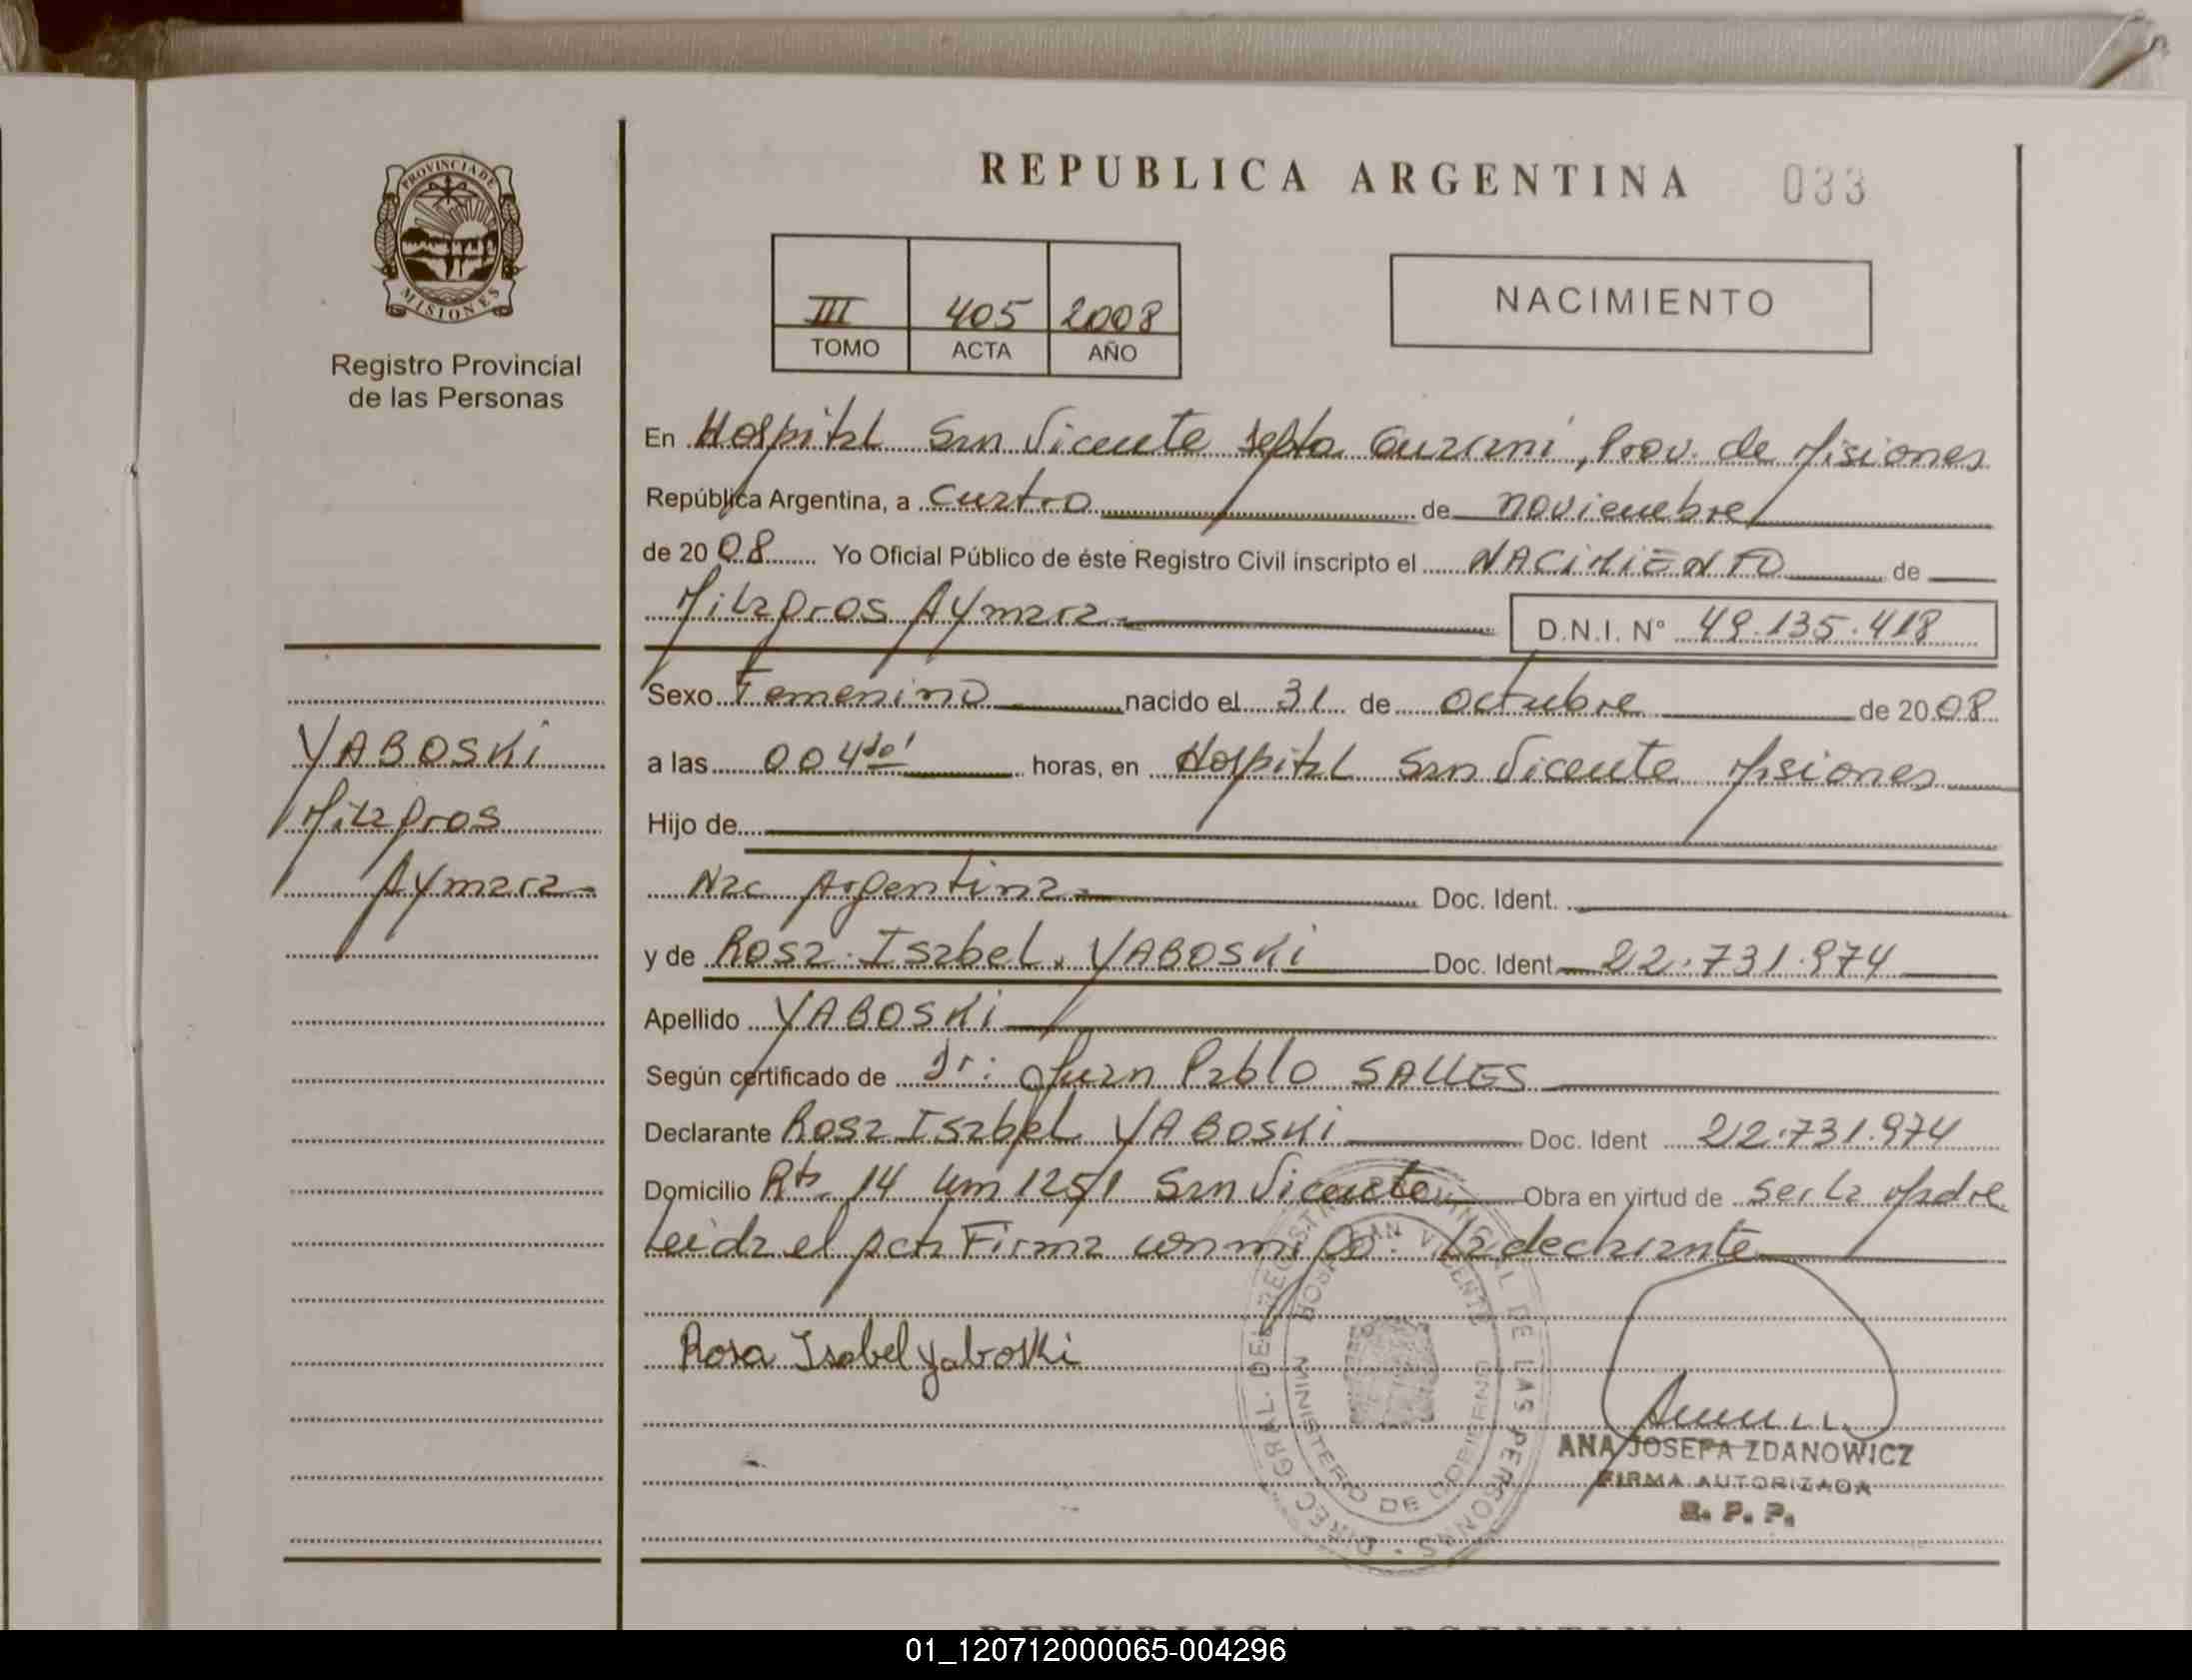 REPUBLICA ARGENTINA 033
PROVINCIA DE
MISIONES
Registro Provincial
de las Personas
III 405 2008
TOMO ACTA AÑO
NACIMIENTO
En Hospital San Vicente Depto Guarani, Prov. de Misiones
República Argentina, a cuatro de noviembre
de 2008 Yo Oficial Público de éste Registro Civil inscripto el NACIMIENTO de
Milagros Aymara D.N.I. Nº 49.135.418
Sexo Femenino nacido el 31 de octubre de 2008
a las 004 horas, en Hospital San Vicente Misiones
Hijo de
Nac Argentina Doc. Ident.
y de Rosa Isabel YABOSKI Doc. Ident 22.731.974
Apellido YABOSKI
Según certificado de Dr: Juan Pablo SALLES
Declarante Rosa Isabel YABOSKI Doc. Ident 22.731.974
Domicilio Rta 14 km 1251 San Vicente Obra en virtud de ser la Madre
Leida el acta Firma conmigo La declarante
Rosa Isabel Yaboski
YABOSKI
Milagros
Aymara
DIREC. GRAL. DEL REGISTRO PROVINCIAL DE LAS PERSONAS
HOSP. SAN VICENTE
MINISTERIO DE GOBIERNO
ANA JOSEFA ZDANOWICZ
FIRMA AUTORIZADA
R. P. P.
REPUBLICA ARGENTINA
01_120712000065-004296